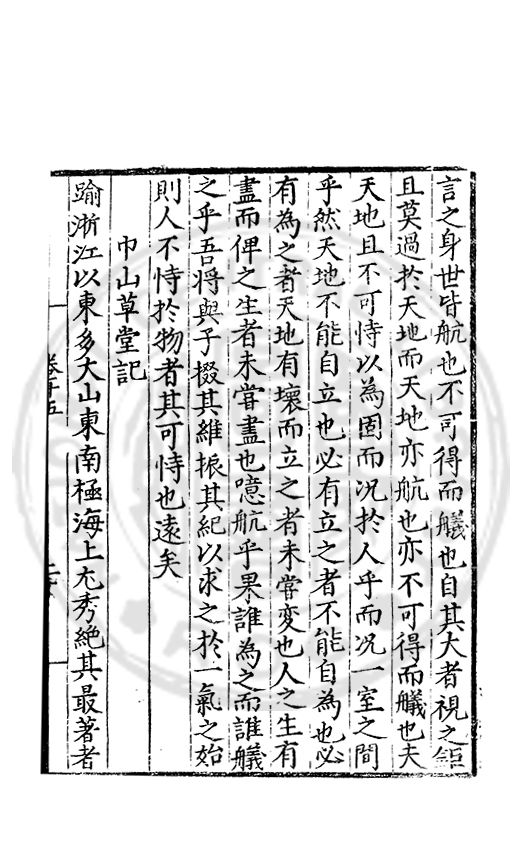 言之身世皆航也不可得而艤也自其大者視之鉅
且莫過於天地而天地亦航也亦不可得而艤也夫
天地且不可恃以為固而况於人乎而况一室之間
乎然天地不能自立也必有立之者不能自為也必
有為之者天地有壞而立之者未嘗変也人之生有
盡而俾之生者未嘗盡也噫航乎果誰為之而誰艤
之乎吾將與子掇其維振其紀以求之於一氣之始
則人不恃於物者其可恃也遠矣
巾山草堂記
踰淛江以東多大山東南極海上尤秀絶其最著者
卷十五